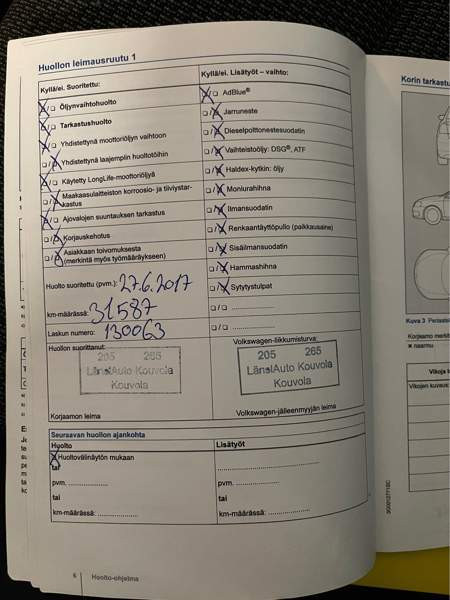 Huollon leimausruutu 1
Kyllä/ei. Suoritettu:
Öljynvaihtohuolto
Tarkastushuolto
Yhdistettynä moottoriöljyn vaihtoon
Yhdistettynä laajempiin huoltotöihin
Käytetty LongLife-moottoriöljyä
Maakaasulaitteiston korroosio- ja tiiviystar-
kastus
Ajovalojen suuntauksen tarkastus
Korjauskehotus
Asiakkaan toivomuksesta
(merkintä myös työmääräykseen)
Huolto suoritettu (pvm.): 27.6.2017
km-määrässä: 31587
Laskun numero: 130063
Huollon suorittanut:
205 265
LänsiAuto Kouvola
Kouvola
Korjaamon leima
Kyllä/ei. Lisätyöt – vaihto:
AdBlue®
Jarruneste
Dieselpolttonestesuodatin
Vaihteistoöljy: DSG®, ATF
Haldex-kytkin: öljy
Moniurahihna
Ilmansuodatin
Renkaantäyttöpullo (paikkausaine)
Sisäilmansuodatin
Hammashihna
Sytytystulpat
Volkswagen-liikkumisturva:
205 265
LänsiAuto Kouvola
Kouvola
Volkswagen-jälleenmyyjän leima
Seuraavan huollon ajankohta
Huolto
Huoltovälinäytön mukaan
tai
pvm. ..................
tai
km-määrässä: ..................
Lisätyöt
pvm. ..................
tai
km-määrässä: ..................
6 Huolto-ohjelma
Korin tarkastu
Kuva 3
Korjaamo merkit
× naarmu
Vikoja
Vikojen kuvaus: